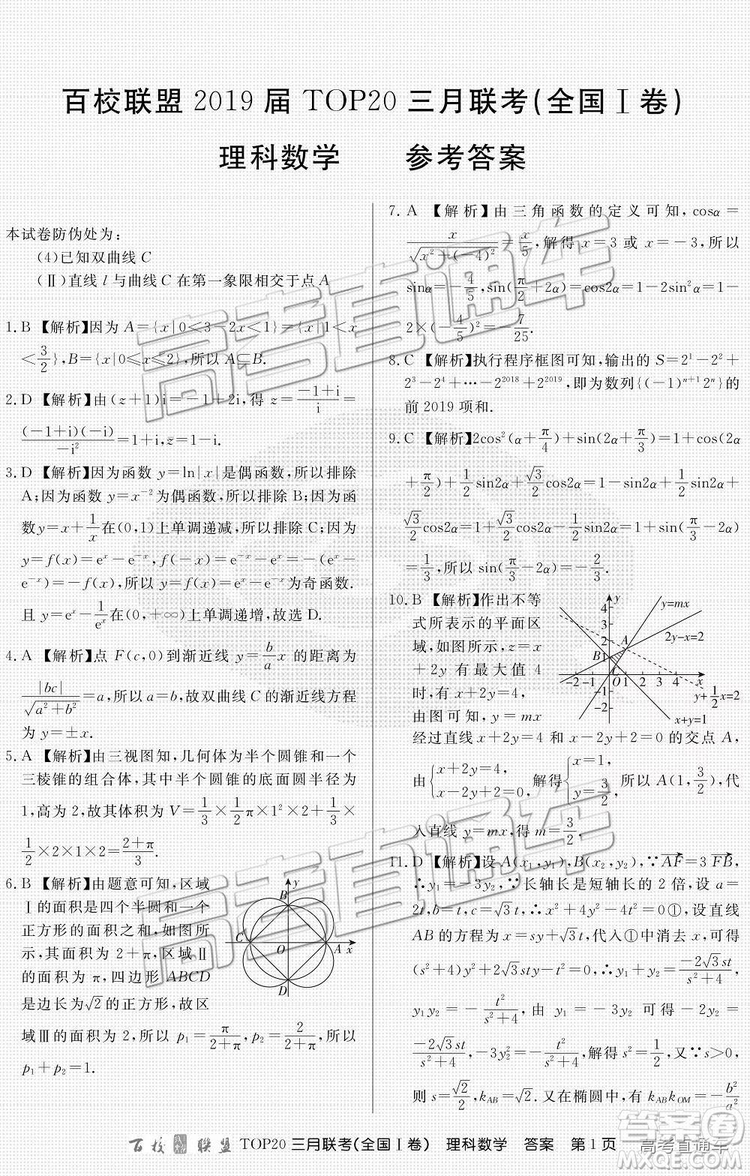 百校联盟 2019 届 TOP20 三月联考(全国Ⅰ卷)
理科数学 参考答案
本试卷防伪处为:
(4)已知双曲线 C
(Ⅱ)直线 l 与曲线 C 在第一象限相交于点 A
1.B 【解析】因为 A={x|0<3-2x<1}={x|1<x
<3/2},B={x|0≤x≤2},所以 A⊆B.
2.D 【解析】由(z+1)i=-1+2i,得 z=(-1+i)/i=
(-1+i)(-i)/(-i²)=1+i.
3.D 【解析】因为函数 y=ln|x|是偶函数,所以排除
A;因为函数 y=x⁻²为偶函数,所以排除 B;因为函
数y=x+1/x在(0,1)上单调递减,所以排除C;因为
y=f(x)=eˣ-e⁻ˣ,f(-x)=e⁻ˣ-eˣ=-(eˣ-
e⁻ˣ)=-f(x),所以 y=f(x)=eˣ-e⁻ˣ为奇函数.
且 y=eˣ-1/eˣ在(0,+∞)上单调递增,故选 D.
4.A 【解析】点 F(c,0)到渐近线 y=b/a x 的距离为
|bc|/√(a²+b²)=a,所以 a=b,故双曲线 C 的渐近线方程
为 y=±x.
5.A 【解析】由三视图知,几何体为半个圆锥和一个
三棱锥的组合体,其中半个圆锥的底面圆半径为
1,高为 2,故其体积为 V=1/3×1/2π×1²×2+1/3×1/2
×2×1×2=(2+π)/3.
6.B 【解析】由题意可知,区域
Ⅰ的面积是四个半圆和一个
正方形的面积之和,如图所
示,其面积为 π+2,区域Ⅱ
的面积为 π,四边形 ABCD
是边长为√2的正方形,故区
域Ⅲ的面积为 2,所以 p₁=π/(2+π),p₂=2/(2+π),所以
p₁-p₂=(π-2)/(π+2).
y
B
C
O
A
x
D
7.A 【解析】由三角函数的定义可知,cosα=
x/√(x²+(-4)²)=x/5,解得 x=3 或 x=-3,所以
sinα=-4/5,sin(π/2+2α)=cos2α=1-2sin²α=1-
2×(-4/5)²=-7/25.
8.C 【解析】执行程序框图可知,输出的 S=2¹-2²+
2³-2⁴+…-2²⁰¹⁸+2²⁰¹⁹,即为数列{(-1)ⁿ⁺¹2ⁿ}的
前 2019 项和.
9.C 【解析】2cos²(α+π/4)+sin(2α+π/3)=1+cos(2α
+π/2)+1/2sin2α+√3/2cos2α=1-sin2α+1/2sin2α+
√3/2cos2α=1-1/2sin2α+√3/2cos2α=1+sin(π/3-2α)
=1/3,所以 sin(π/3-2α)=-2/3.
10.B 【解析】作出不等
式所表示的平面区
域,如图所示,z=x
+2y 有最大值 4
时,有 x+2y=4,
由图可知,y=mx
经过直线 x+2y=4 和 x-2y+2=0 的交点 A,
由{x+2y=4,x-2y+2=0,解得{x=1,y=3/2,所以 A(1,3/2),代
入直线 y=mx,得 m=3/2.
y=mx
2y-x=2
y+1/2x=2
x+y=1
11.D 【解析】设 A(x₁,y₁),B(x₂,y₂),∵AF=3FB,
∴y₁=-3y₂,∵长轴长是短轴长的 2 倍,设 a=
2t,b=t,c=√3t,∴x²+4y²-4t²=0①,设直线
AB 的方程为 x=sy+√3t,代入①中消去 x,可得
(s²+4)y²+2√3sty-t²=0,∴y₁+y₂=-2√3st/(s²+4),
y₁y₂=-t²/(s²+4),∴-2y₂=
-2√3st/(s²+4),-3y₂²=-t²/(s²+4),解得 s²=1/2,又∵s>0,
则 s=√2/2,k_AB=√2.又在椭圆中,有 k_AB k_OM=-b²/a²
百校联盟 TOP20 三月联考(全国Ⅰ卷) 理科数学 答案 第1页
高考直通车